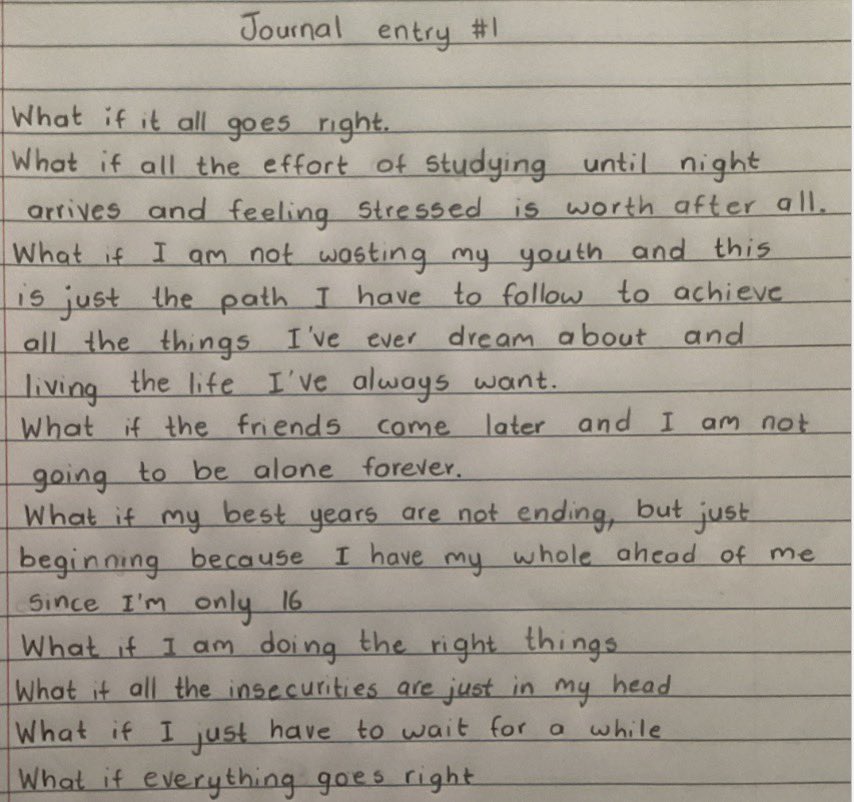 Journal entry #1
What if it all goes right.
What if all the effort of studying until night
arrives and feeling stressed is worth after all.
What if I am not wasting my youth and this
is just the path I have to follow to achieve
all the things I've ever dream about and
living the life I've always want.
What if the friends come later and I am not
going to be alone forever.
What if my best years are not ending, but just
beginning because I have my whole ahead of me
since I'm only 16
What if I am doing the right things
What if all the insecurities are just in my head
What if I just have to wait for a while
What if everything goes right